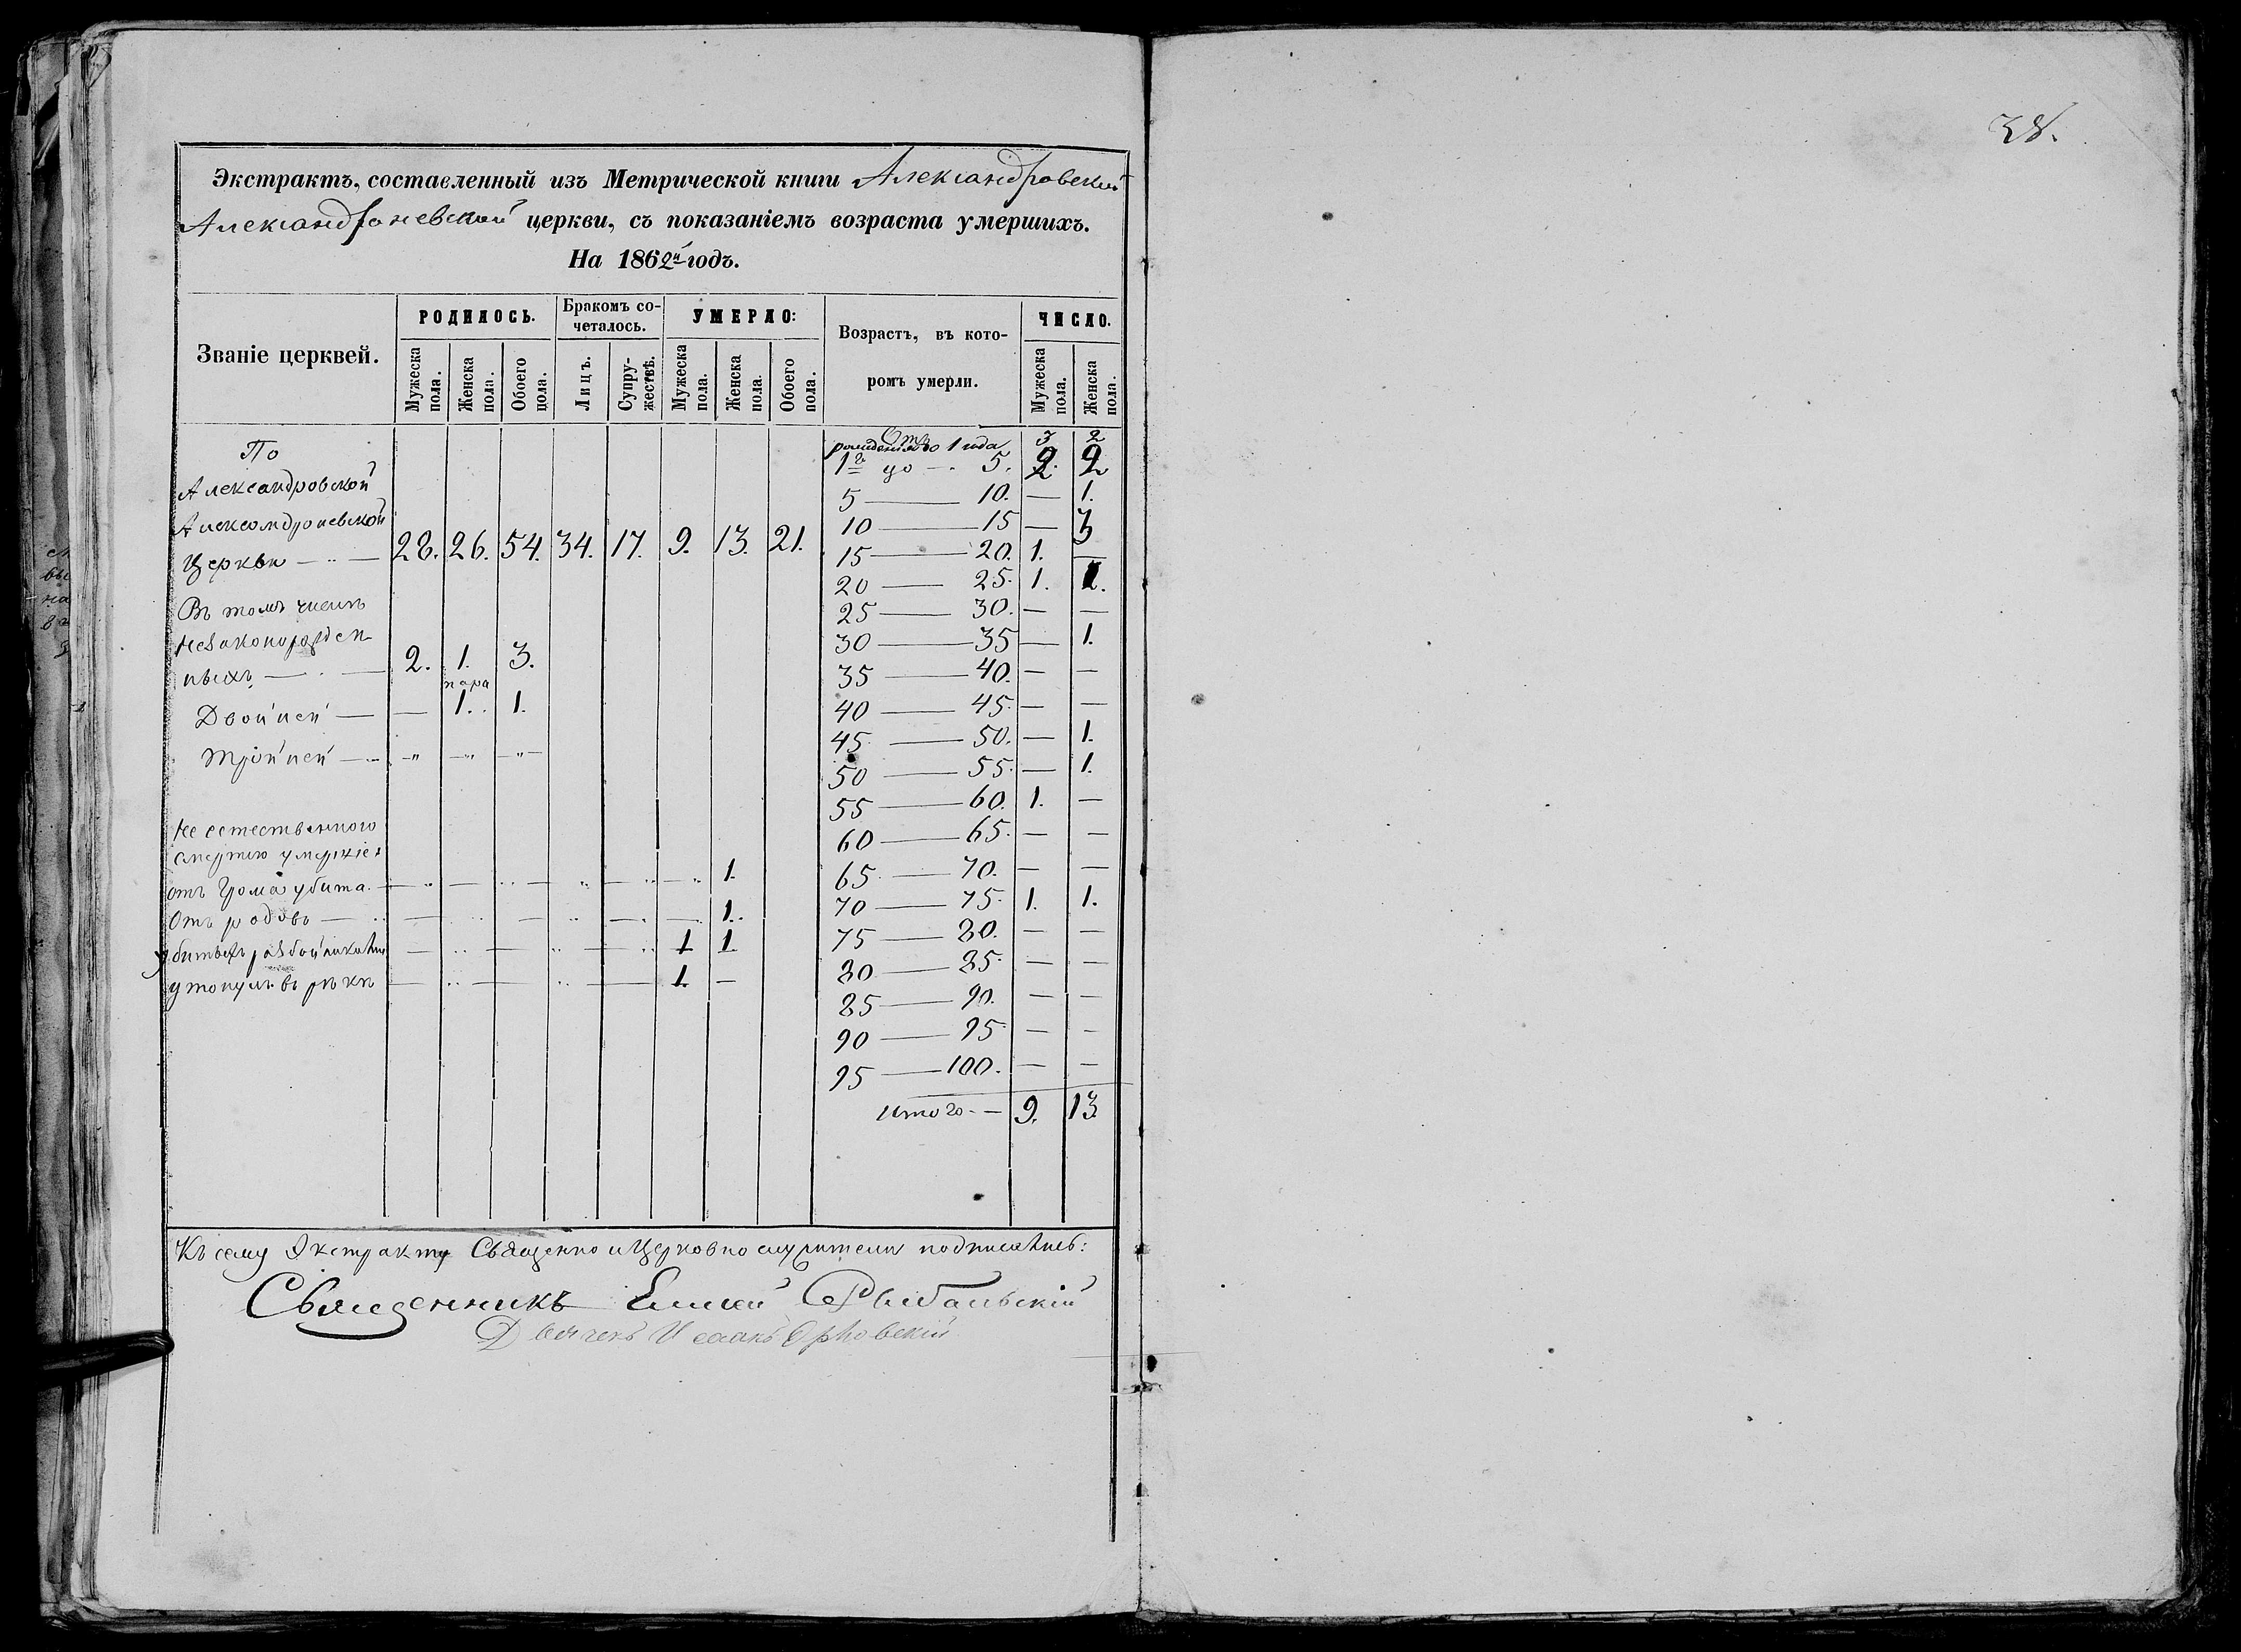 38.
Экстрактъ, составленный изъ Метрической книги Александровской
Александроневской церкви, съ показаніемъ возраста умершихъ.
На 1862й годъ.
Званіе церквей.
РОДИЛОСЬ.
Бракомъ со-
четалось.
УМЕРЛО:
Возрастъ, въ кото-
ромъ умерли.
ЧИСЛО.
Мужеска пола.
Женска пола.
Обоего пола.
Лицъ.
Супру-
жествъ.
Мужеска пола.
Женска пола.
Обоего пола.
Мужеска пола.
Женска пола.
По
Александровской
Александроневской
Церкви — 28. 26. 54. 34. 17. 9. 13. 21.
Въ томъ числѣ
незаконорожден-
ныхъ — 2. 1. 3.
пара
Двойней — — 1. 1.
Тройней — — " — " — " —
Не естественною
смертію умершіе:
отъ Грома убита — 1.
Отъ родовъ — 1.
убитыхъ разбойниками — 1 1
утонулъ въ рѣкѣ — 1. —
Отъ
рожденія до 1 года 3 2
1го до — 5. 2. 2
5 — 10. — 1.
10 — 15 — 3
15 — 20. 1. —
20 — 25. 1. 1.
25 — 30. — —
30 — 35 — 1.
35 — 40. — —
40 — 45. — —
45 — 50. — 1.
50 — 55. — 1.
55 — 60. 1. —
60 — 65. — —
65 — 70. — —
70 — 75. 1. 1.
75 — 80. — —
80 — 85. — —
85 — 90. — —
90 — 95. — —
95 — 100. — —
Итого — 9. 13
Къ сему Экстракту Священно и Церковно служители подписались:
Священникъ Елисей Рыбальскій
Дьячекъ Исаакъ Орловскій